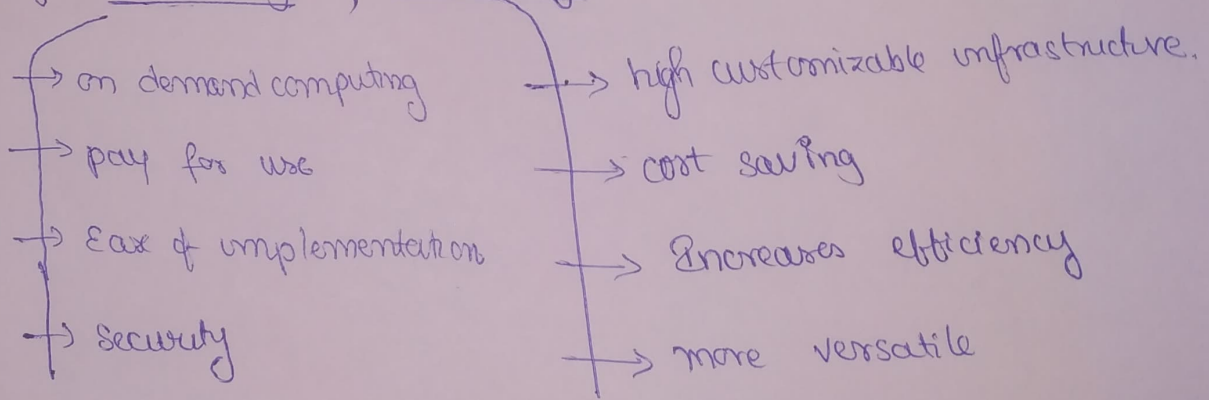 on demand computing
pay for use
Ease of implementation
security
high customizable infrastructure.
cost saving
Increases efficiency
more versatile